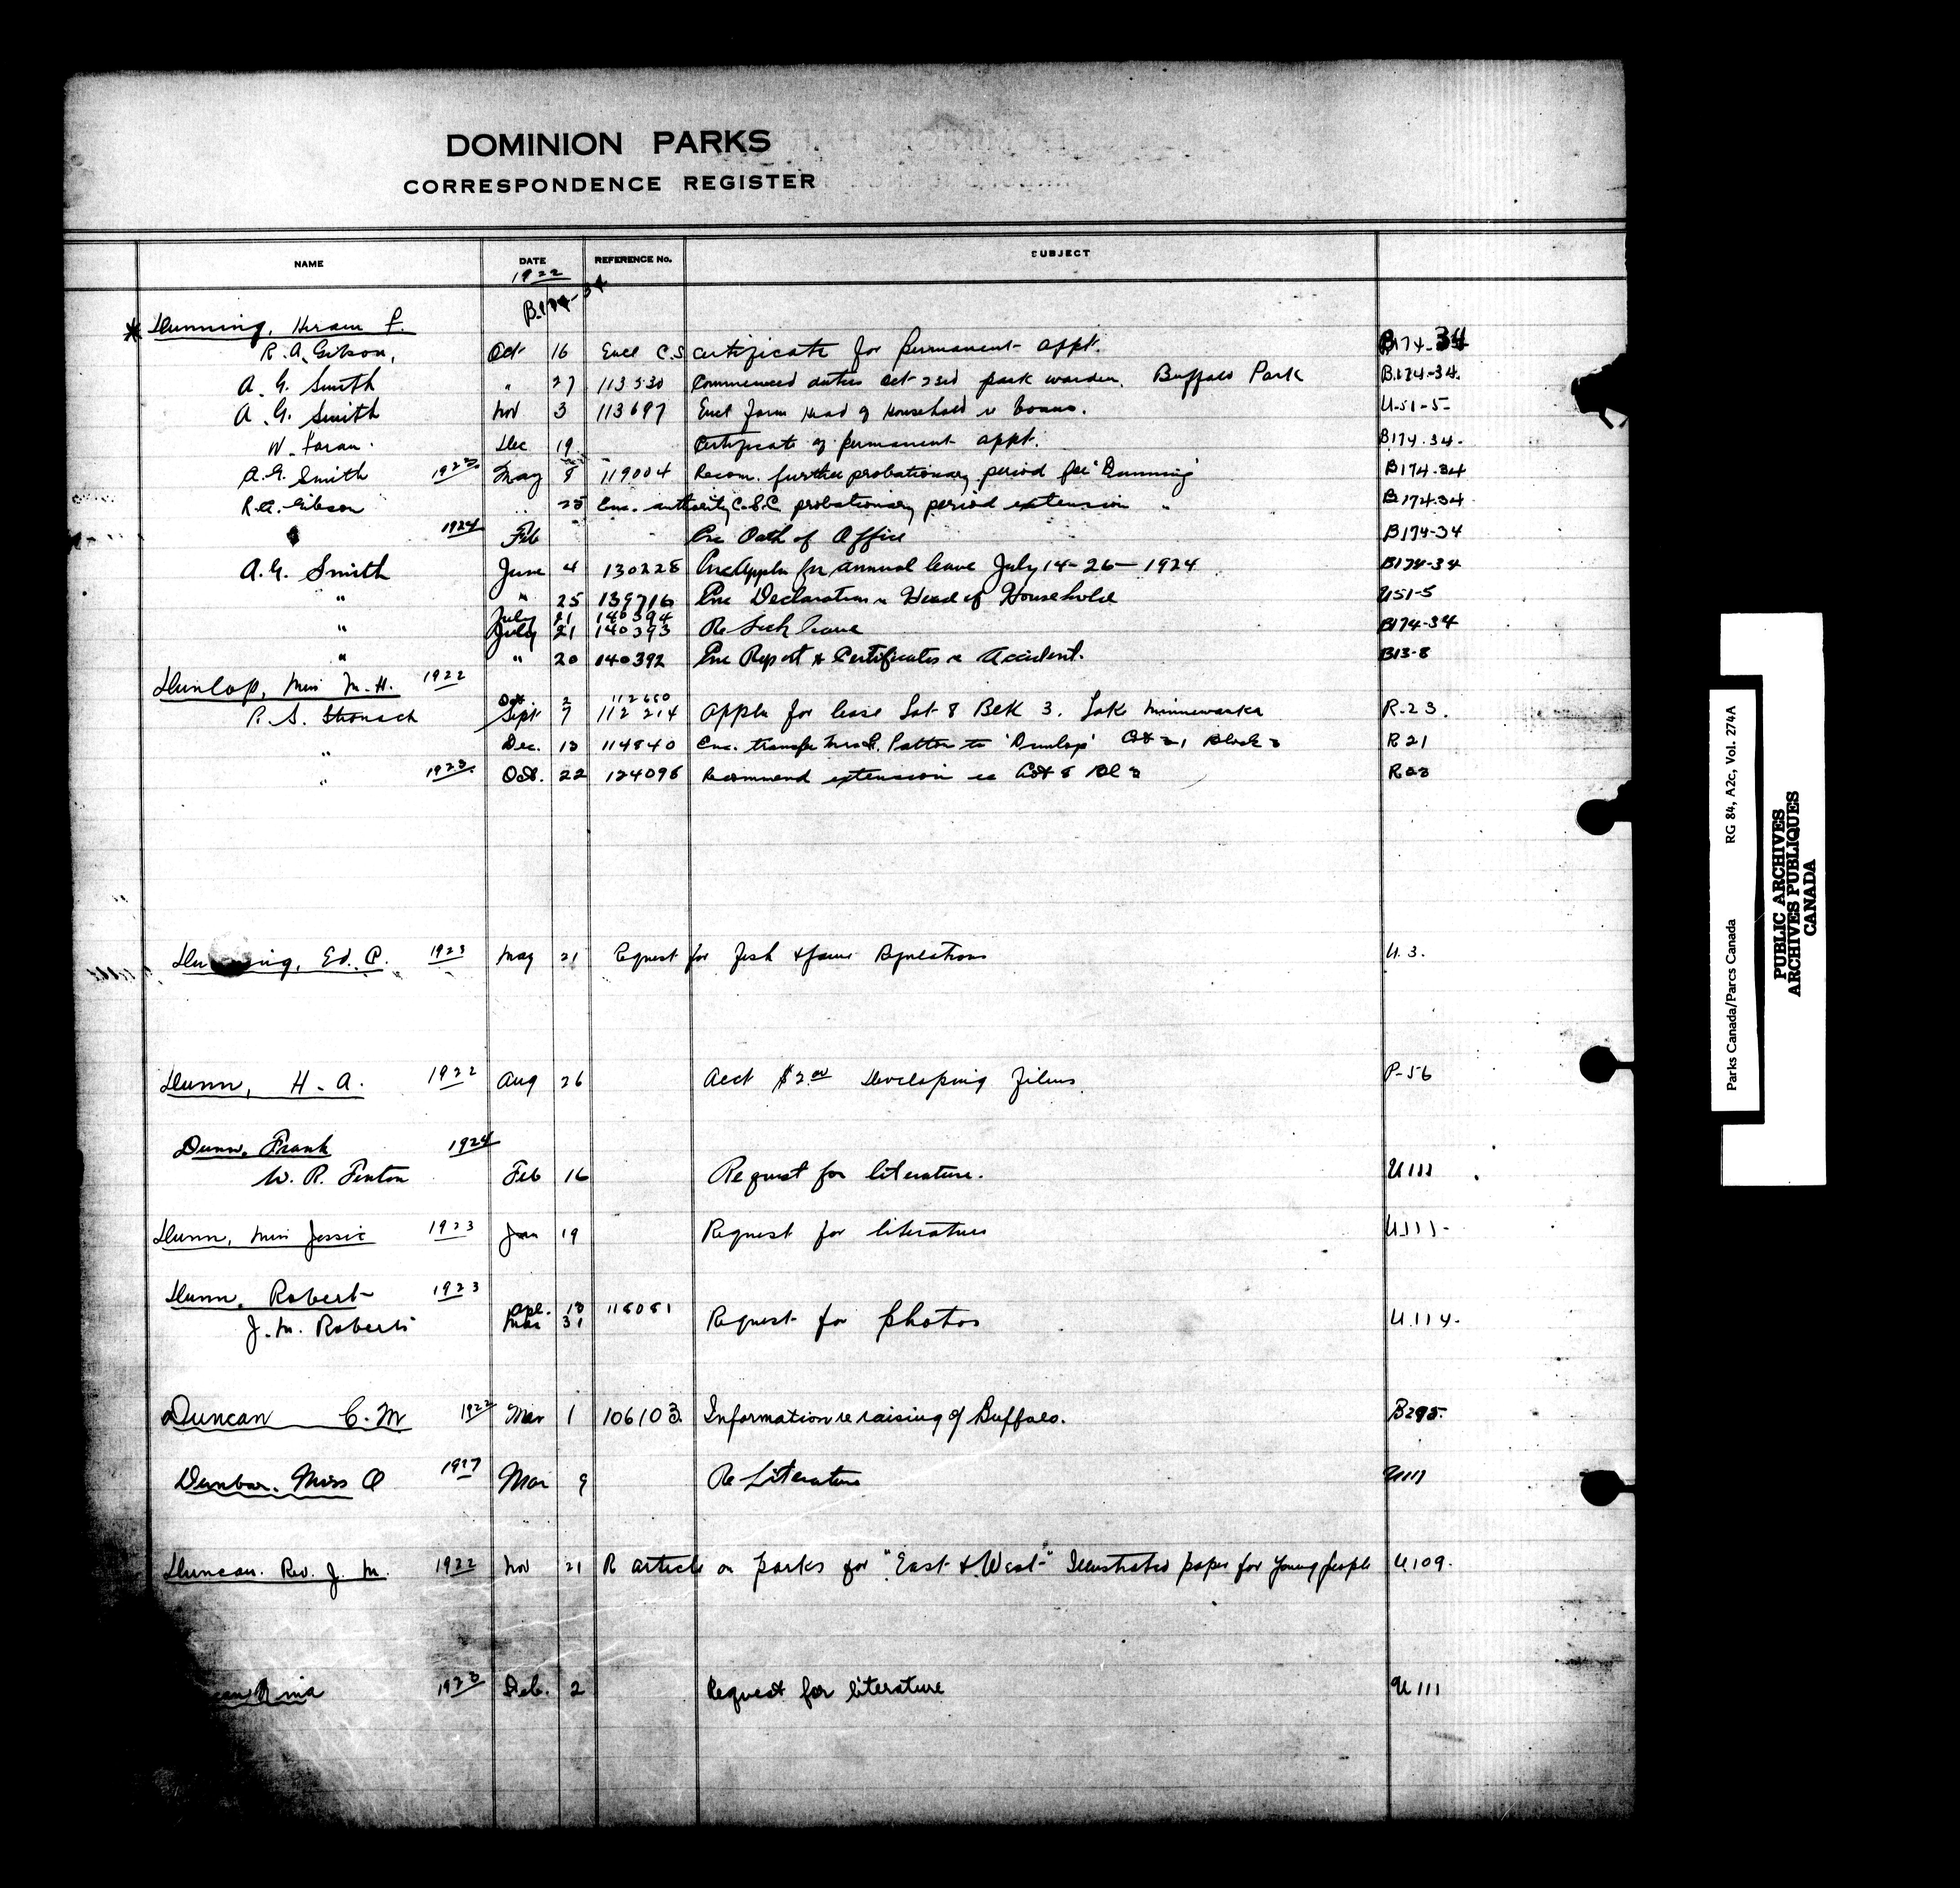 DOMINION PARKS
CORRESPONDENCE REGISTER
NAME DATE REFERENCE No. SUBJECT
1922
B.174-34
* Dunning, Hiram F.
R. A. Gibson, Oct 16 Encl C.S certificate for permanent appt. B174-34
A. G. Smith " 27 113530 Commenced duties Oct 23rd park warden. Buffalo Park B.174-34.
A. G. Smith Nov 3 113697 Encl form Head of Household re bonus. U-51-5-
W. Foran. Dec 19 Certificate of permanent appt. B174.34-
A.G. Smith 1923 May 8 119004 Recom. further probationary period for "Dunning" B174-34
R.A. Gibson " 25 Enc. authority C.S.C. probationary period extension " B174-34
" 1924 Feb Enc Oath of Office B174-34
A.G. Smith June 4 130228 Enc Appln for annual leave July 14-26-1924 B174-34
" " 25 139716 Enc Declaration re Head of Household U51-5
July 21 140394
" July 21 140393 Re Sick leave B174-34
" " 20 140392 Enc Report & Certificates re Accident. B13-8
Dunlop, Miss M.H. 1922
Oct 2 112650
P. S. Stronach Sept 7 112214 Appln for lease Lot 8 Blk 3. Lake Minnewanka R-23.
" Dec. 13 114840 Enc. transfer Patton to 'Dunlop' Lot 21 Block 3 R21
" 1923 Oct. 22 124098 Recommend extension re Lot 8 Bl 3 R23
Ed. P. 1923 May 21 Request for Fish & Game Regulations U.3.
Dunn, H-A. 1922 Aug 26 Acct $2.00 Developing Films. P-56
Dunn, Frank 1924
W. R. Fenton Feb 16 Request for literature. U111
Dunn, Miss Jessie 1923 Jan 19 Request for literature U111-
Dunn, Robert 1923
Apl. 13 118081
J. M. Roberts Mar 31 Request for photos U.114-
Duncan C. M 1922 Mar 1 106103 Information re raising of Buffalo. B295.
Dunbar. Miss O 1927 Mar 9 Re Literature U111
Duncan. Rev. J. M. 1922 Nov 21 R article on parks for "East & West" Illustrated paper for young people U109.
1923 Feb. 2 Request for literature U111
Parks Canada/Parcs Canada RG 84, A2c, Vol. 274A
PUBLIC ARCHIVES
ARCHIVES PUBLIQUES
CANADA